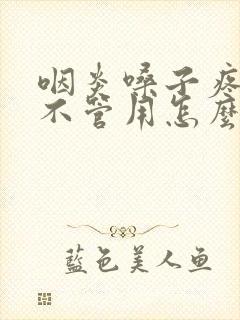 咽炎嗓子疼
不管用怎麼
藍色美人魚